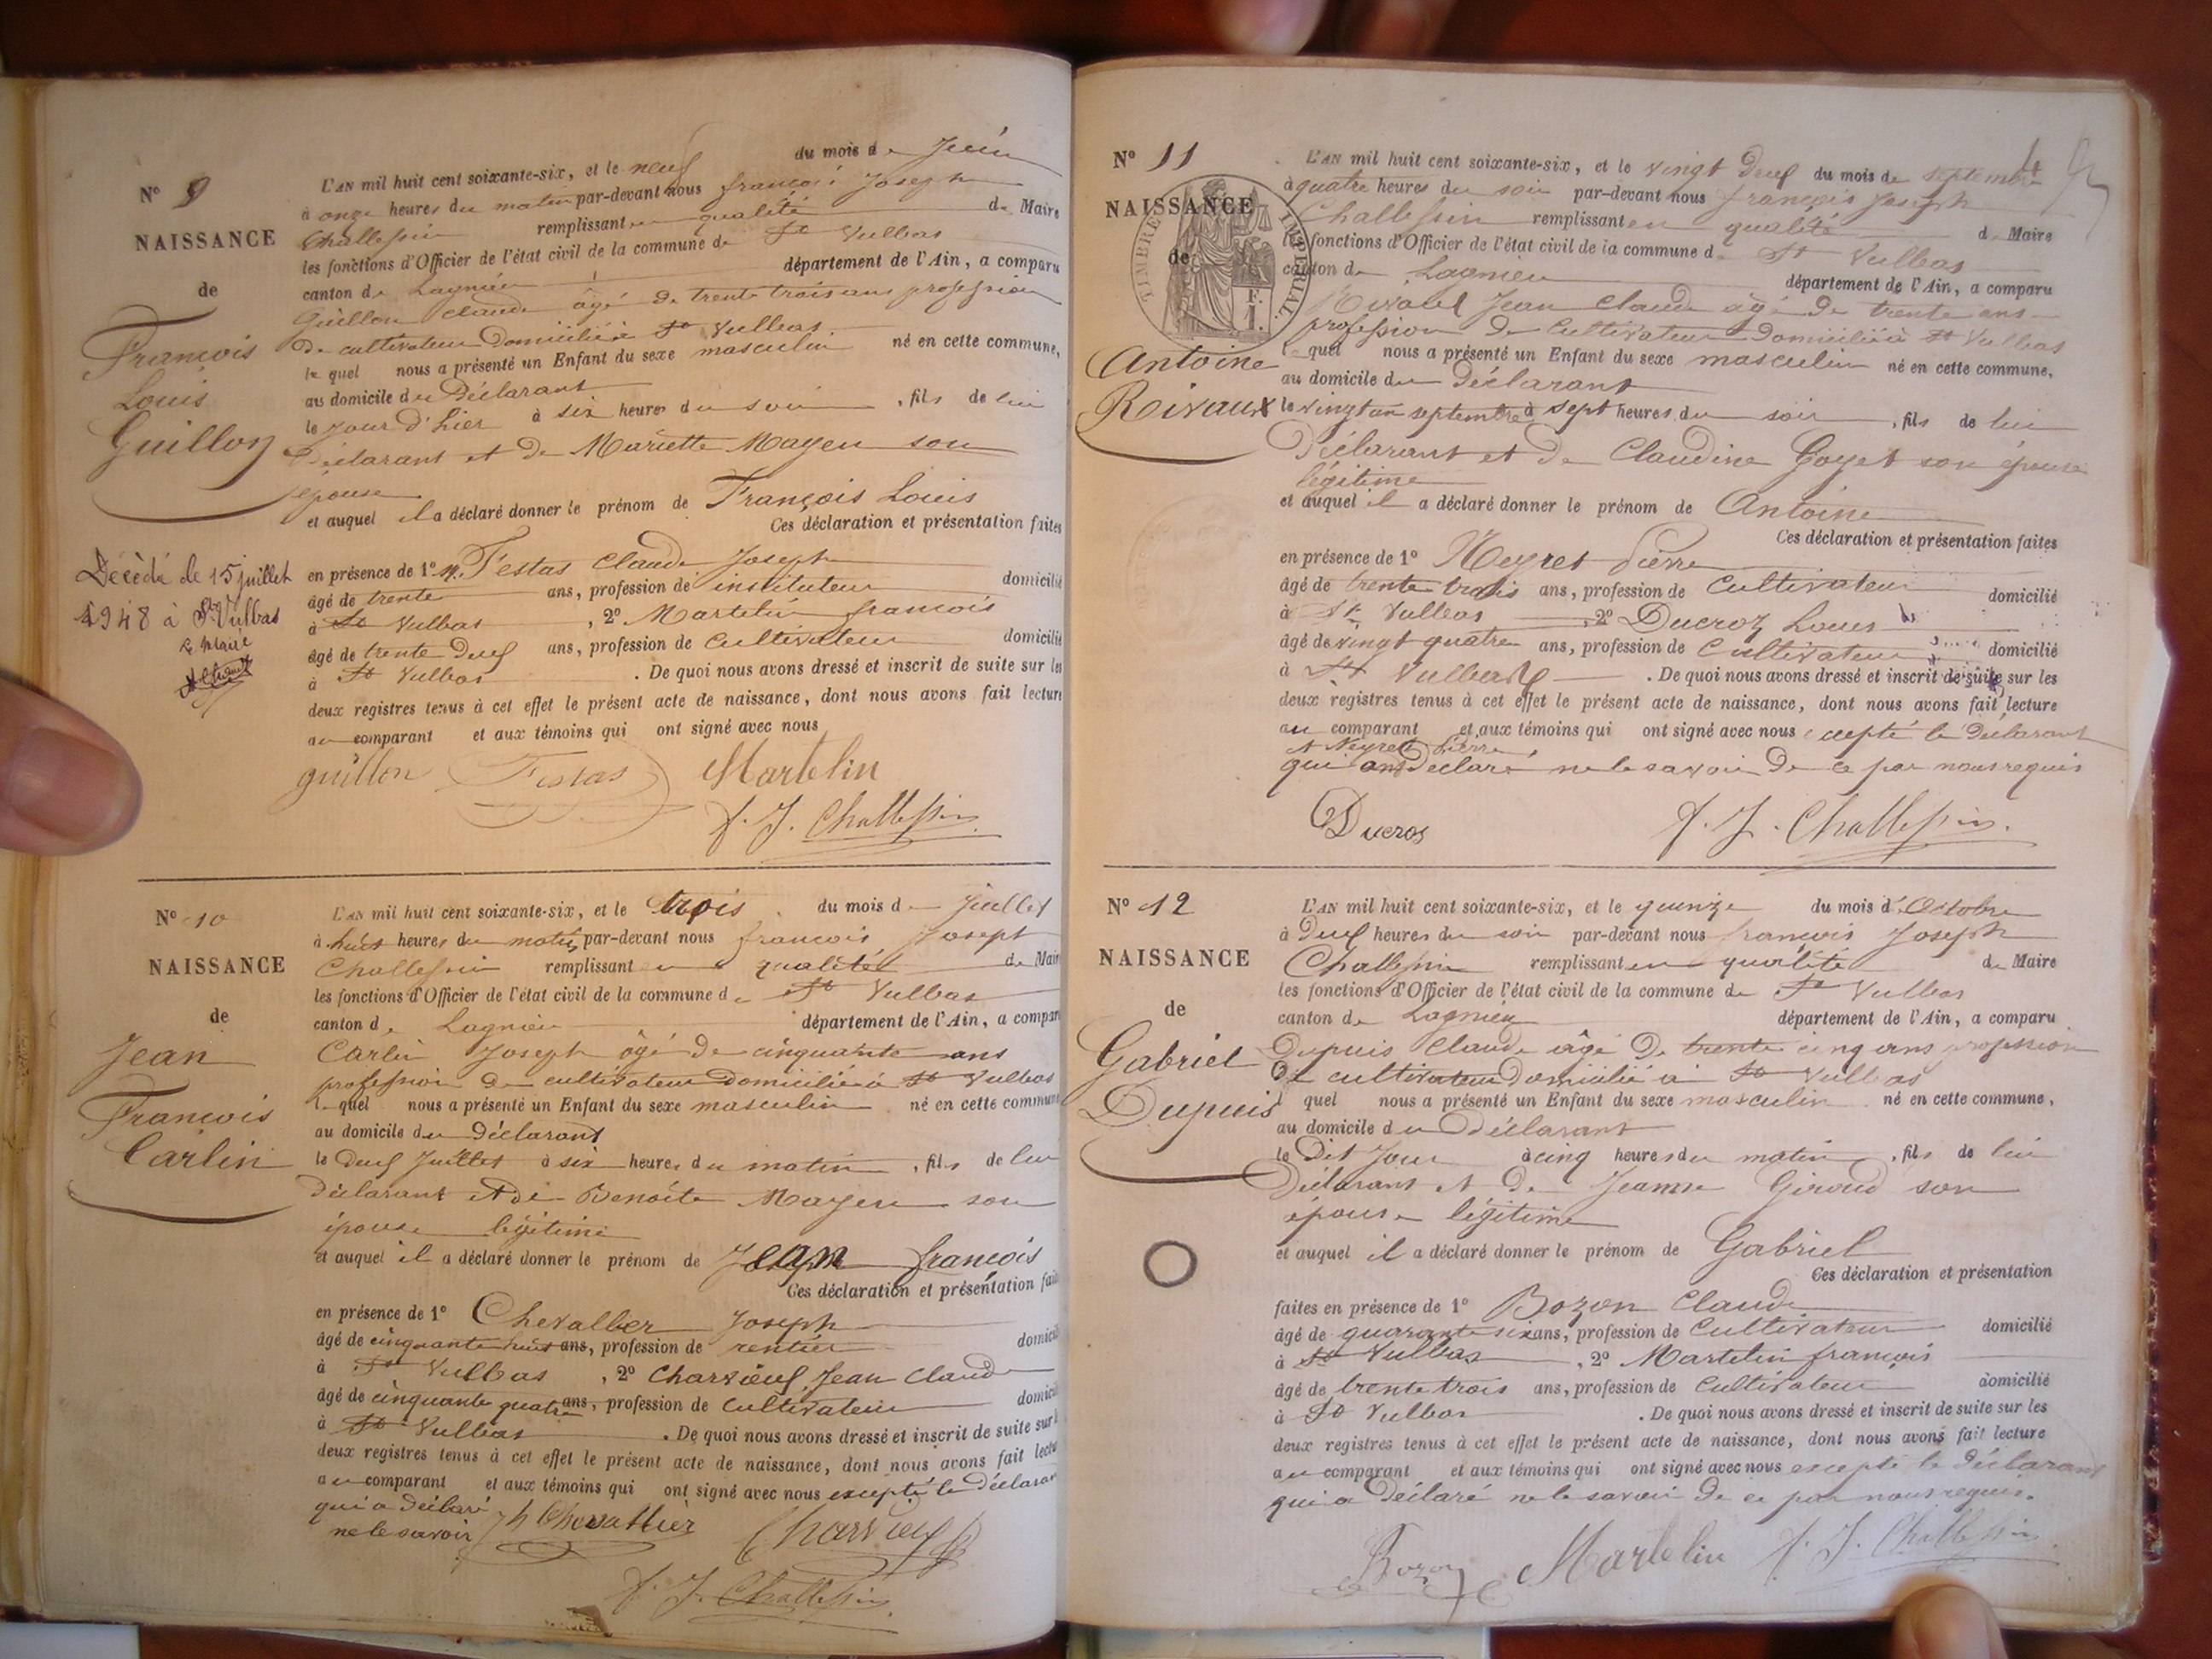 N° 9
NAISSANCE
de
François
Louis
Guillon
Décédé le 15 juillet
1948 à St Vulbas
Le Maire
L'AN mil huit cent soixante-six, et le neuf du mois de Juin
à onze heures du matin par-devant nous françois Joseph
Challessin remplissant en qualité de Maire
les fonctions d'Officier de l'état civil de la commune de St Vulbas
canton de Lagnieu département de l'Ain, a comparu
Guillon Claude âgé de trente trois ans profession
de cultivateur domicilié à St Vulbas
le quel nous a présenté un Enfant du sexe masculin né en cette commune,
au domicile du Déclarant
le jour d'hier à six heures du soir, fils de lui
Déclarant et de Mariette Mayen son
épouse
et auquel il a déclaré donner le prénom de François Louis
Ces déclaration et présentation faites
en présence de 1° Mr. Festas Claude Joseph
âgé de trente ans, profession de instituteur domicilié
à St Vulbas, 2° Martelin françois
âgé de trente deux ans, profession de Cultivateur domicilié
à St Vulbas. De quoi nous avons dressé et inscrit de suite sur les
deux registres tenus à cet effet le présent acte de naissance, dont nous avons fait lecture
au comparant et aux témoins qui ont signé avec nous
guillon Festas Martelin
f. J. Challessin
N° 10
NAISSANCE
de
Jean
François
Carlin
L'AN mil huit cent soixante-six, et le trois du mois de Juillet
à huit heures du matin par-devant nous françois Joseph
Challessin remplissant en qualité de Maire
les fonctions d'Officier de l'état civil de la commune de St Vulbas
canton de Lagnieu département de l'Ain, a comparu
Carlin Joseph âgé de cinquante ans
profession de cultivateur domicilié à St Vulbas
le quel nous a présenté un Enfant du sexe masculin né en cette commune
au domicile du Déclarant
le deux Juillet à six heures du matin, fils de lui
Déclarant et de Benoîte Mayen son
épouse légitime
et auquel il a déclaré donner le prénom de Jean françois
Ces déclaration et présentation faites
en présence de 1° Chevallier Joseph
âgé de cinquante huit ans, profession de rentier domicilié
à St Vulbas, 2° Charvieux Jean Claude
âgé de cinquante quatre ans, profession de Cultivateur domicilié
à St Vulbas. De quoi nous avons dressé et inscrit de suite sur les
deux registres tenus à cet effet le présent acte de naissance, dont nous avons fait lecture
au comparant et aux témoins qui ont signé avec nous excepté le Déclarant
qui a déclaré
ne le savoir Jh Chevallier Charvieux
f. J. Challessin
N° 11
NAISSANCE
de
TIMBRE IMPÉRIAL
F.
1.
Antoine
Rivaux
L'AN mil huit cent soixante-six, et le vingt deux du mois de septembre
à quatre heures du soir par-devant nous françois Joseph
Challessin remplissant en qualité de Maire
les fonctions d'Officier de l'état civil de la commune de St Vulbas
canton de Lagnieu département de l'Ain, a comparu
Rivaux Jean Claude âgé de trente ans
profession de Cultivateur domicilié à St Vulbas
le quel nous a présenté un Enfant du sexe masculin né en cette commune,
au domicile du Déclarant
le vingt un septembre à sept heures du soir, fils de lui
Déclarant et de Claudine Goyet son épouse
légitime
et auquel il a déclaré donner le prénom de Antoine
Ces déclaration et présentation faites
en présence de 1° Neyret Pierre
âgé de trente trois ans, profession de Cultivateur domicilié
à St Vulbas, 2° Ducroz Louis
âgé de vingt quatre ans, profession de Cultivateur domicilié
à St Vulbas. De quoi nous avons dressé et inscrit de suite sur les
deux registres tenus à cet effet le présent acte de naissance, dont nous avons fait lecture
au comparant et aux témoins qui ont signé avec nous excepté le Déclarant
et Neyret Pierre
qui ont Déclaré ne le savoir de ce par nous requis
Ducros f. J. Challessin
N° 12
NAISSANCE
de
Gabriel
Dupuis
L'AN mil huit cent soixante-six, et le quinze du mois d'Octobre
à Deux heures du soir par-devant nous françois Joseph
Challessin remplissant en qualité de Maire
les fonctions d'Officier de l'état civil de la commune de St Vulbas
canton de Lagnieu département de l'Ain, a comparu
Dupuis Claude âgé de trente cinq ans profession
de cultivateur domicilié à St Vulbas
le quel nous a présenté un Enfant du sexe masculin né en cette commune,
au domicile du Déclarant
le Dit Jour à cinq heures du matin, fils de lui
Déclarant et de Jeanne Giroud son
épouse légitime
et auquel il a déclaré donner le prénom de Gabriel
Ces déclaration et présentation
faites en présence de 1° Bozon Claude
âgé de quarante six ans, profession de Cultivateur domicilié
à St Vulbas, 2° Martelin françois
âgé de trente trois ans, profession de Cultivateur domicilié
à St Vulbas. De quoi nous avons dressé et inscrit de suite sur les
deux registres tenus à cet effet le présent acte de naissance, dont nous avons fait lecture
au comparant et aux témoins qui ont signé avec nous excepté le Déclarant
qui a Déclaré ne le savoir de ce par nous requis.
Bozon Martelin f. J. Challessin